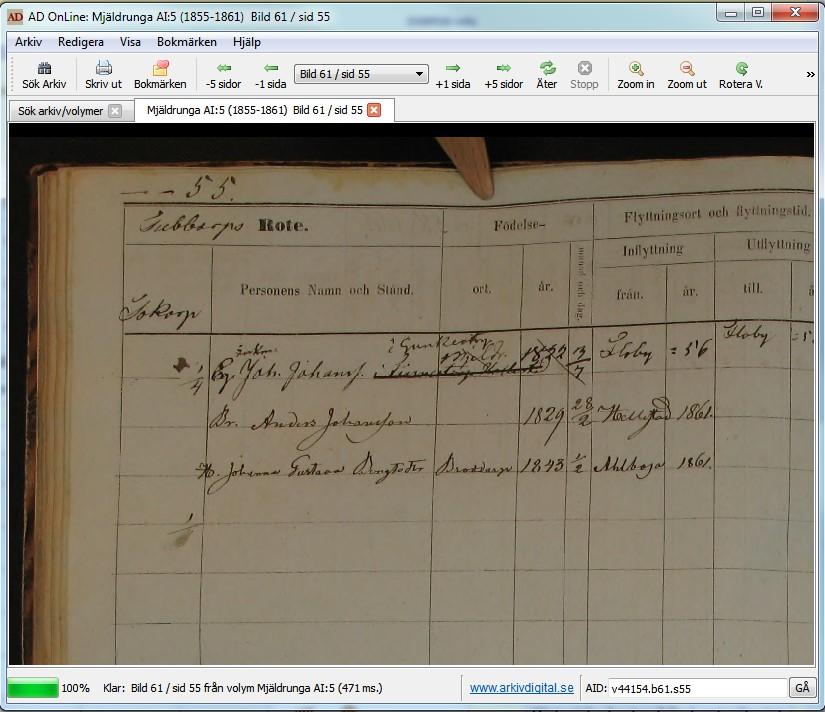 AD OnLine: Mjäldrunga AI:5 (1855-1861) Bild 61 / sid 55
Arkiv Redigera Visa Bokmärken Hjälp
Sök Arkiv Skriv ut Bokmärken -5 sidor -1 sida Bild 61 / sid 55 +1 sida +5 sidor Åter Stopp Zoom in Zoom ut Rotera V. »
Sök arkiv/volymer Mjäldrunga AI:5 (1855-1861) Bild 61 / sid 55
- - 55.
Rote. Födelse- Flyttningsort och flyttningstid.
Inflyttning Utflyttning
Personens Namn och Stånd. ort. år. månad och dag. från. år. till. å
1/4 Eg. Joh. Johanss. 1822 13/7 Floby = 56 Floby
Br. Anders Johansson 1829 28/2 1861.
H. Johanna Gustava 1843 1/2 1861.
100% Klar: Bild 61 / sid 55 från volym Mjäldrunga AI:5 (471 ms.) www.arkivdigital.se AID: v44154.b61.s55 GÅ